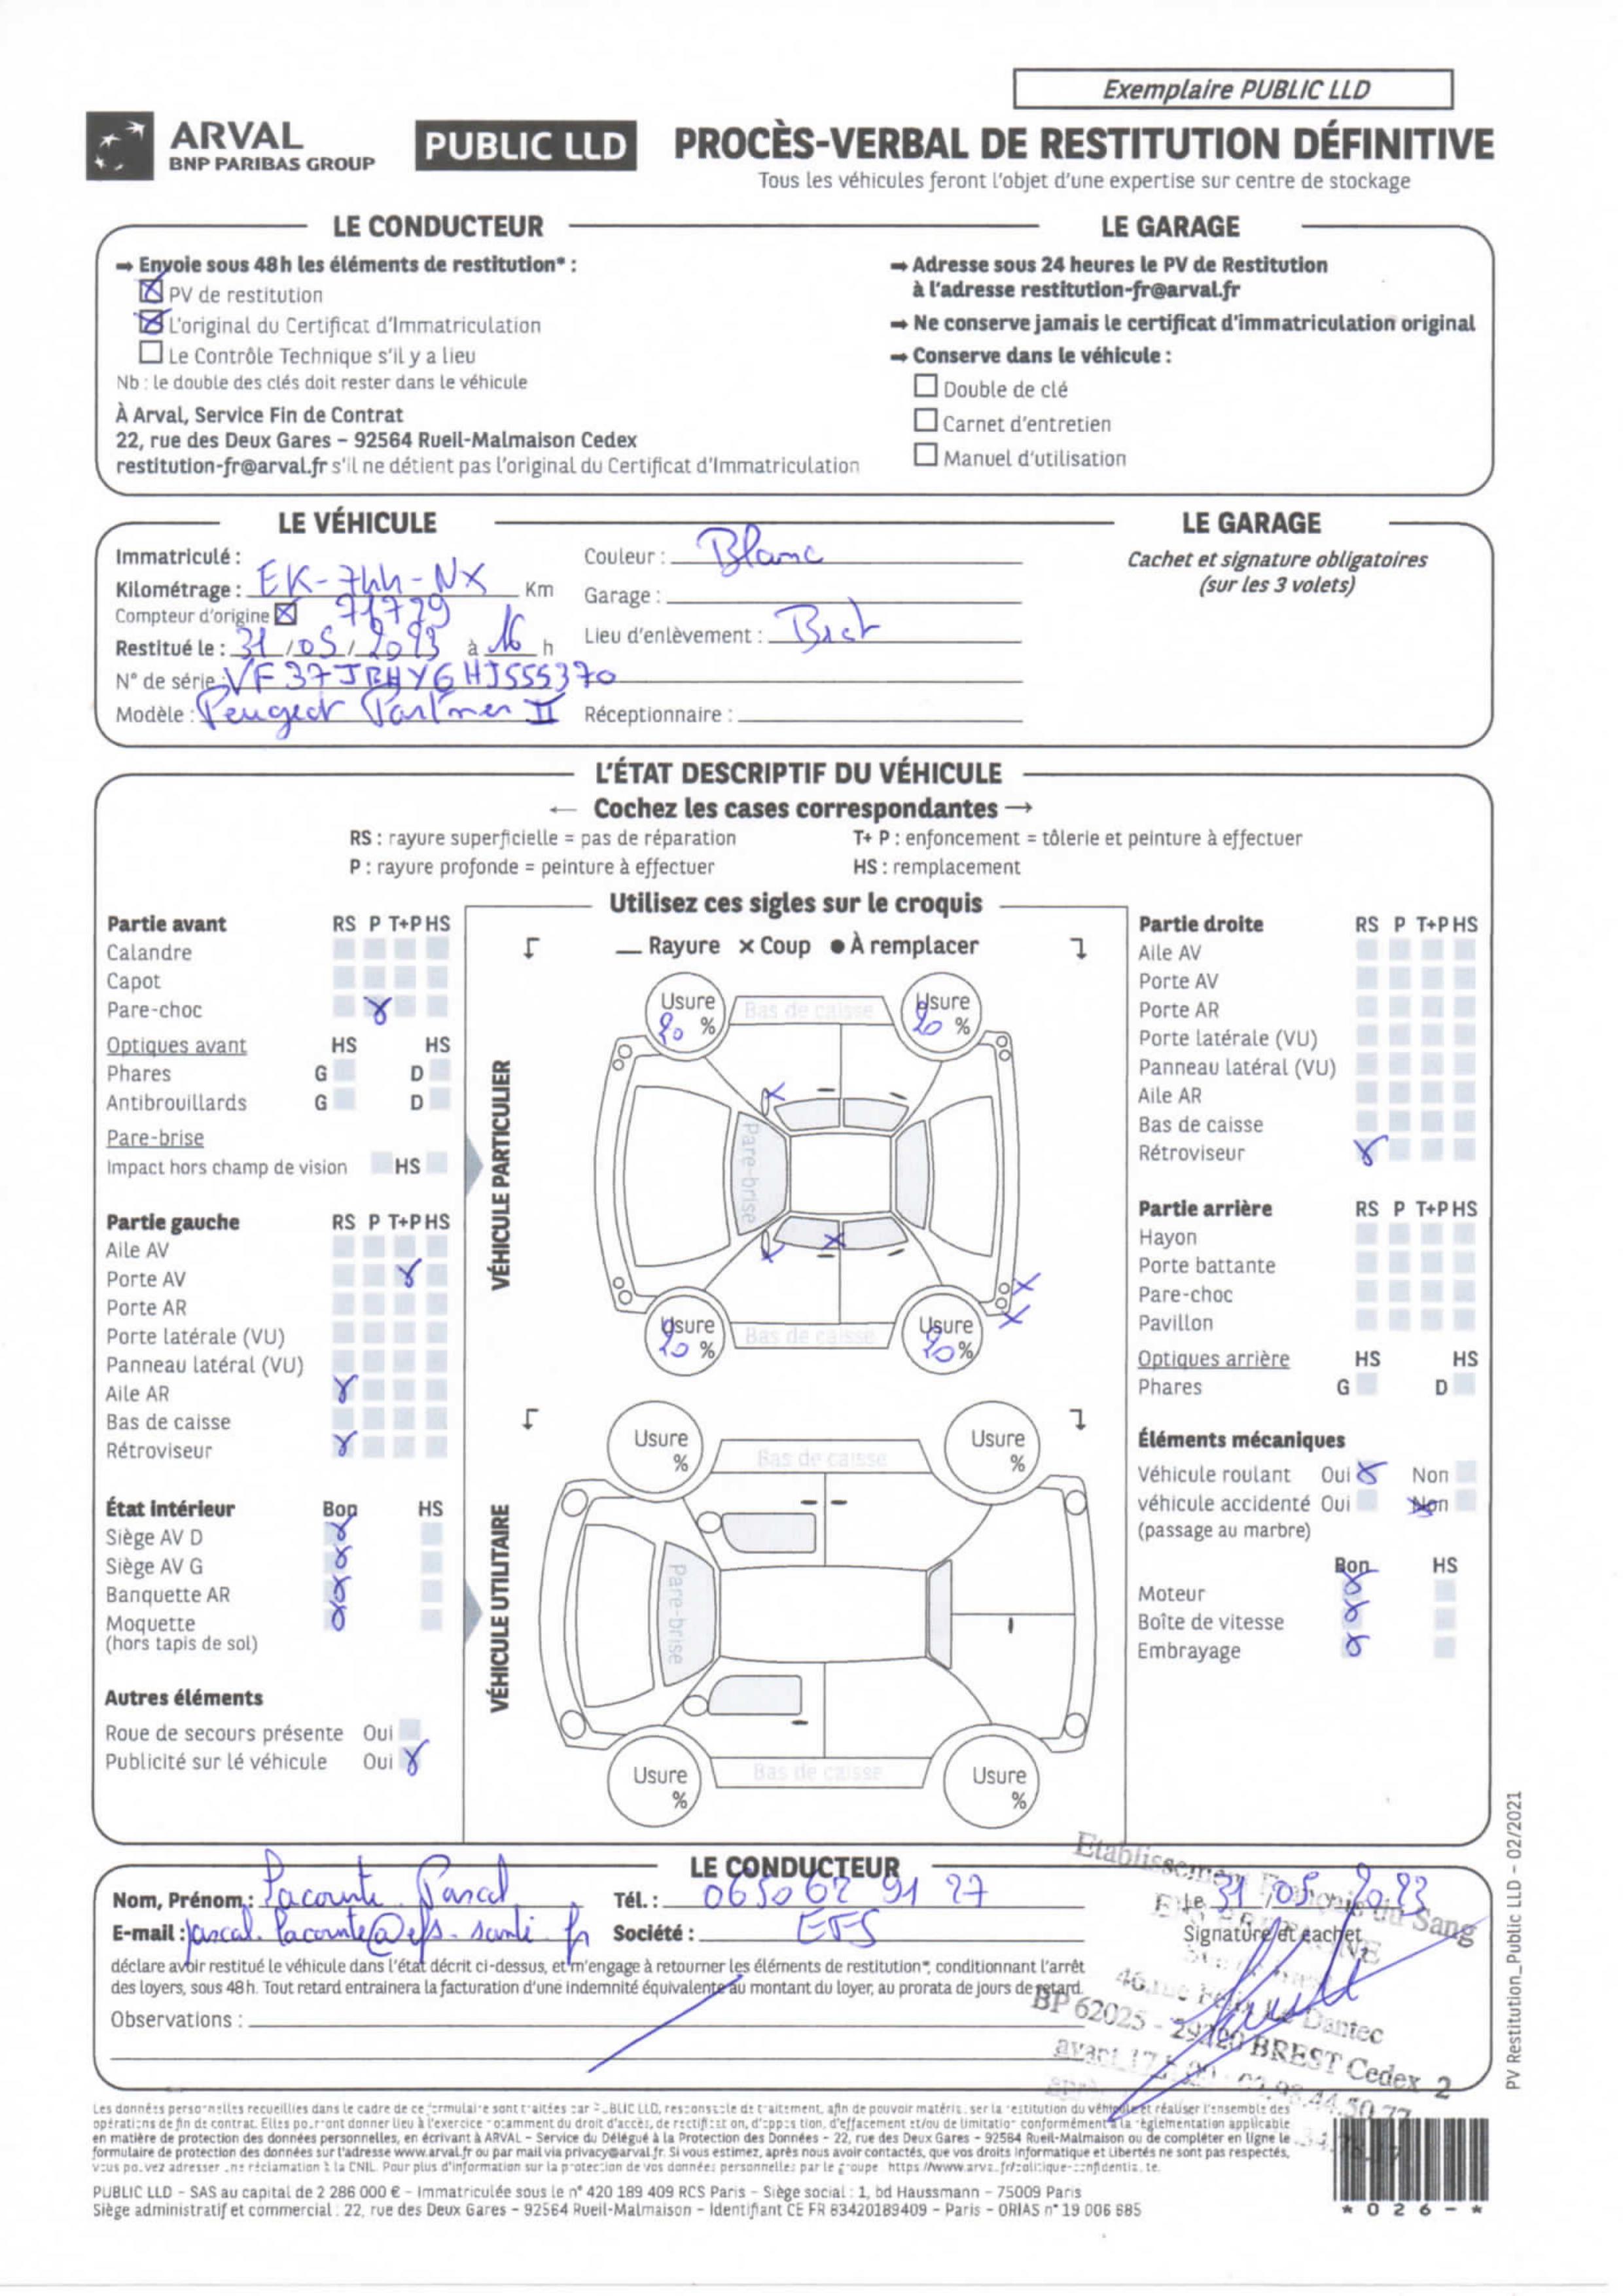 Exemplaire PUBLIC LLD
ARVAL
BNP PARIBAS GROUP
PUBLIC LLD
PROCÈS-VERBAL DE RESTITUTION DÉFINITIVE
Tous les véhicules feront l'objet d'une expertise sur centre de stockage
LE CONDUCTEUR
➞ Envoie sous 48h les éléments de restitution* :
PV de restitution
L'original du Certificat d'Immatriculation
Le Contrôle Technique s'il y a lieu
Nb : le double des clés doit rester dans le véhicule
À Arval, Service Fin de Contrat
22, rue des Deux Gares – 92564 Rueil-Malmaison Cedex
restitution-fr@arval.fr s'il ne détient pas l'original du Certificat d'Immatriculation
LE GARAGE
➞ Adresse sous 24 heures le PV de Restitution
à l'adresse restitution-fr@arval.fr
➞ Ne conserve jamais le certificat d'immatriculation original
➞ Conserve dans le véhicule :
Double de clé
Carnet d'entretien
Manuel d'utilisation
LE VÉHICULE
Immatriculé :
Kilométrage : EK-744-NX Km
Compteur d'origine 71779
Restitué le : 31/05/2023 à 16 h
N° de série : VF37JBHY6HJ555370
Modèle : Peugeot Partner II
Couleur : Blanc
Garage :
Lieu d'enlèvement : Brest
Réceptionnaire :
LE GARAGE
Cachet et signature obligatoires
(sur les 3 volets)
L'ÉTAT DESCRIPTIF DU VÉHICULE
← Cochez les cases correspondantes →
RS : rayure superficielle = pas de réparation
T+ P : enfoncement = tôlerie et peinture à effectuer
P : rayure profonde = peinture à effectuer
HS : remplacement
Partie avant RS P T+P HS
Calandre
Capot
Pare-choc
Optiques avant HS HS
Phares G D
Antibrouillards G D
Pare-brise
Impact hors champ de vision HS
Partie gauche RS P T+P HS
Aile AV
Porte AV
Porte AR
Porte latérale (VU)
Panneau latéral (VU)
Aile AR
Bas de caisse
Rétroviseur
État intérieur Bon HS
Siège AV D
Siège AV G
Banquette AR
Moquette
(hors tapis de sol)
Autres éléments
Roue de secours présente Oui
Publicité sur lé véhicule Oui
Utilisez ces sigles sur le croquis
— Rayure × Coup ● À remplacer
VÉHICULE PARTICULIER
Usure 20 %
Bas de caisse
Usure 20 %
Pare-brise
Usure 20 %
Bas de caisse
Usure 20 %
VÉHICULE UTILITAIRE
Usure %
Bas de caisse
Usure %
Pare-brise
Usure %
Bas de caisse
Usure %
Partie droite RS P T+P HS
Aile AV
Porte AV
Porte AR
Porte latérale (VU)
Panneau latéral (VU)
Aile AR
Bas de caisse
Rétroviseur
Partie arrière RS P T+P HS
Hayon
Porte battante
Pare-choc
Pavillon
Optiques arrière HS HS
Phares G D
Éléments mécaniques
Véhicule roulant Oui Non
véhicule accidenté Oui Non
(passage au marbre)
Bon HS
Moteur
Boîte de vitesse
Embrayage
LE CONDUCTEUR
Nom, Prénom : Lacourte Pascal
Tél. : 0650629127
Le 31/05/2023
E-mail : pascal.lacourte@efs.sante.fr
Société : EFS
Signature et cachet
déclare avoir restitué le véhicule dans l'état décrit ci-dessus, et m'engage à retourner les éléments de restitution*, conditionnant l'arrêt
des loyers, sous 48h. Tout retard entrainera la facturation d'une indemnité équivalente au montant du loyer, au prorata de jours de retard.
Observations :
Etablissement Français du Sang
BP 62025 - 29220 BREST Cedex 2
Les données personnelles recueillies dans le cadre de ce formulaire sont traitées par PUBLIC LLD, responsable de traitement, afin de pouvoir matérialiser la restitution du véhicule et réaliser l'ensemble des
opérations de fin de contrat. Elles pourront donner lieu à l'exercice notamment du droit d'accès, de rectification, d'opposition, d'effacement et/ou de limitation conformément à la réglementation applicable
en matière de protection des données personnelles, en écrivant à ARVAL – Service du Délégué à la Protection des Données – 22, rue des Deux Gares – 92564 Rueil-Malmaison ou de compléter en ligne le
formulaire de protection des données sur l'adresse www.arval.fr ou par mail via privacy@arval.fr. Si vous estimez, après nous avoir contactés, que vos droits Informatique et Libertés ne sont pas respectés,
vous pouvez adresser une réclamation à la CNIL. Pour plus d'information sur la protection de vos données personnelles par le groupe
PUBLIC LLD – SAS au capital de 2 286 000 € – Immatriculée sous le n° 420 189 409 RCS Paris – Siège social : 1, bd Haussmann – 75009 Paris
Siège administratif et commercial : 22, rue des Deux Gares – 92564 Rueil-Malmaison – Identifiant CE FR 83420189409 – Paris – ORIAS n° 19 006 685
*026-*
PV Restitution_Public LLD – 02/2021